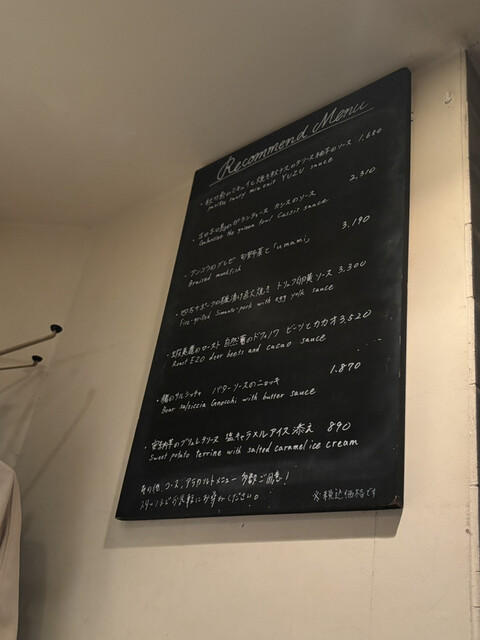 Recommend Menu
ソース 1,680
YUZU sauce
ソース 2,310
the guinea fowl Cassis sauce
アンコウのブレゼ 旬野菜と「umami」 3,190
Braised monkfish
四万十ポークの 漬け 炭火焼き トリュフ卵黄ソース 3,300
Fire-grilled Simanto-pork with egg yolk sauce
・蝦夷鹿のロースト 自然 のドフィノワ ビーツとカカオ 3,520
Roast EZO deer beets and cacao sauce
・猪のサルシッチャ バターソースのニョッキ 1,870
Boar salsiccia Gnocchi with butter sauce
・安納芋のテリーヌ 塩キャラメルアイス添え 890
Sweet potato terrine with salted caramel ice cream
その他、コース、アラカルトメニュー 多数ご用意！
お気軽にお尋ねください。
※税込価格です